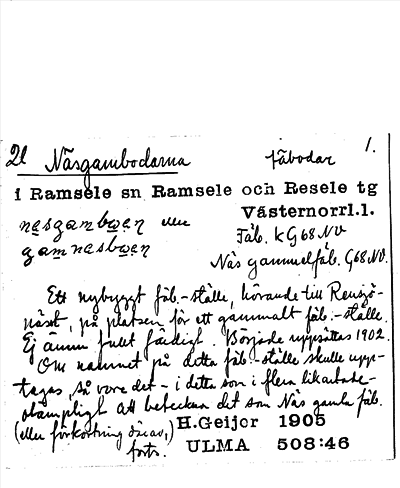 21 Näsgambodarna fäbodar 1.
i Ramsele sn Ramsele och Resele tg
Västernorrl.l.
nesgamboen eller
Fäb. k G68 NV
gamnesboen
Näs gammelfäb. G68 NV.
Ett nybyggt fäb.-ställe, hörande till Rensjö-
näset, på platsen för ett gammalt fäb.-ställe.
Ej ännu fullt färdigt. Började uppsättas 1902.
Om namnet på detta fäb.-ställe skulle upp-
tagas, så vore det - i detta som i flera likartade -
olämpligt att beteckna det som Näs gamla fäb.
(eller förkortning därav,)
forts.
H.Geijer 1905
ULMA 508:46